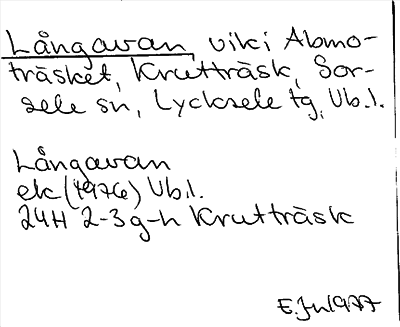 Långavan, vik i Abmo-
träsket, Krutträsk, Sor-
sele sn, Lycksele tg, Vb.l.
Långavan
ek (1976) Vb.l.
24H 2-3g-h Krutträsk
E.Jn 1977